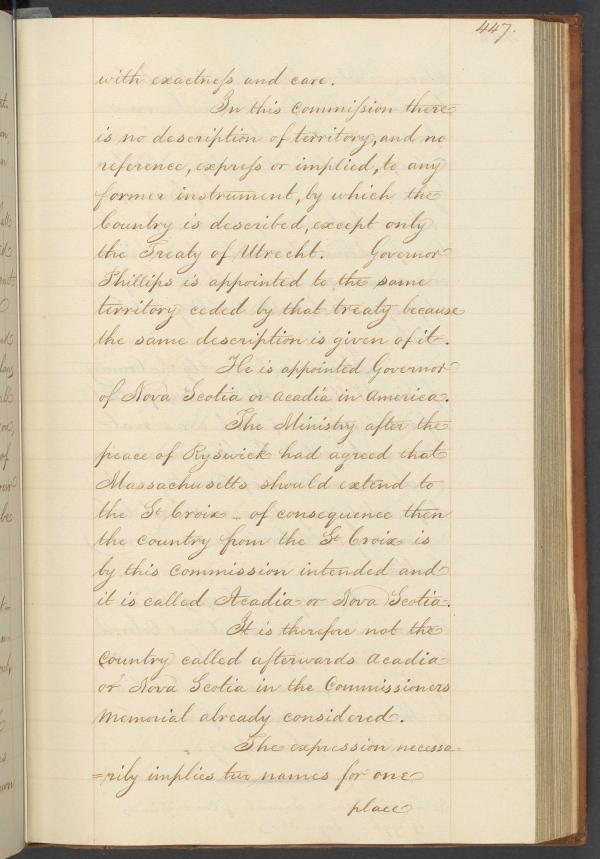 447.
with exactness and care.
In this commission there
is no description of territory, and no
reference, express or implied, to any
former instrument, by which the
Country is described, except only
the Treaty of Utrecht. Governor
Phillips is appointed to the same
territory ceded by that treaty because
the same description is given of it.
He is appointed Governor
of Nova Scotia or Acadia in America.
The Ministry after the
peace of Ryswick had agreed that
Massachusetts should extend to
the St Croix - of consequence then
the country from the St Croix is
by this commission intended and
it is called Acadia or Nova Scotia.
It is therefore not the
Country called afterwards Acadia
or Nova Scotia in the Commissioners
Memorial already considered.
The expression necessa=
=rily implies two names for one
place